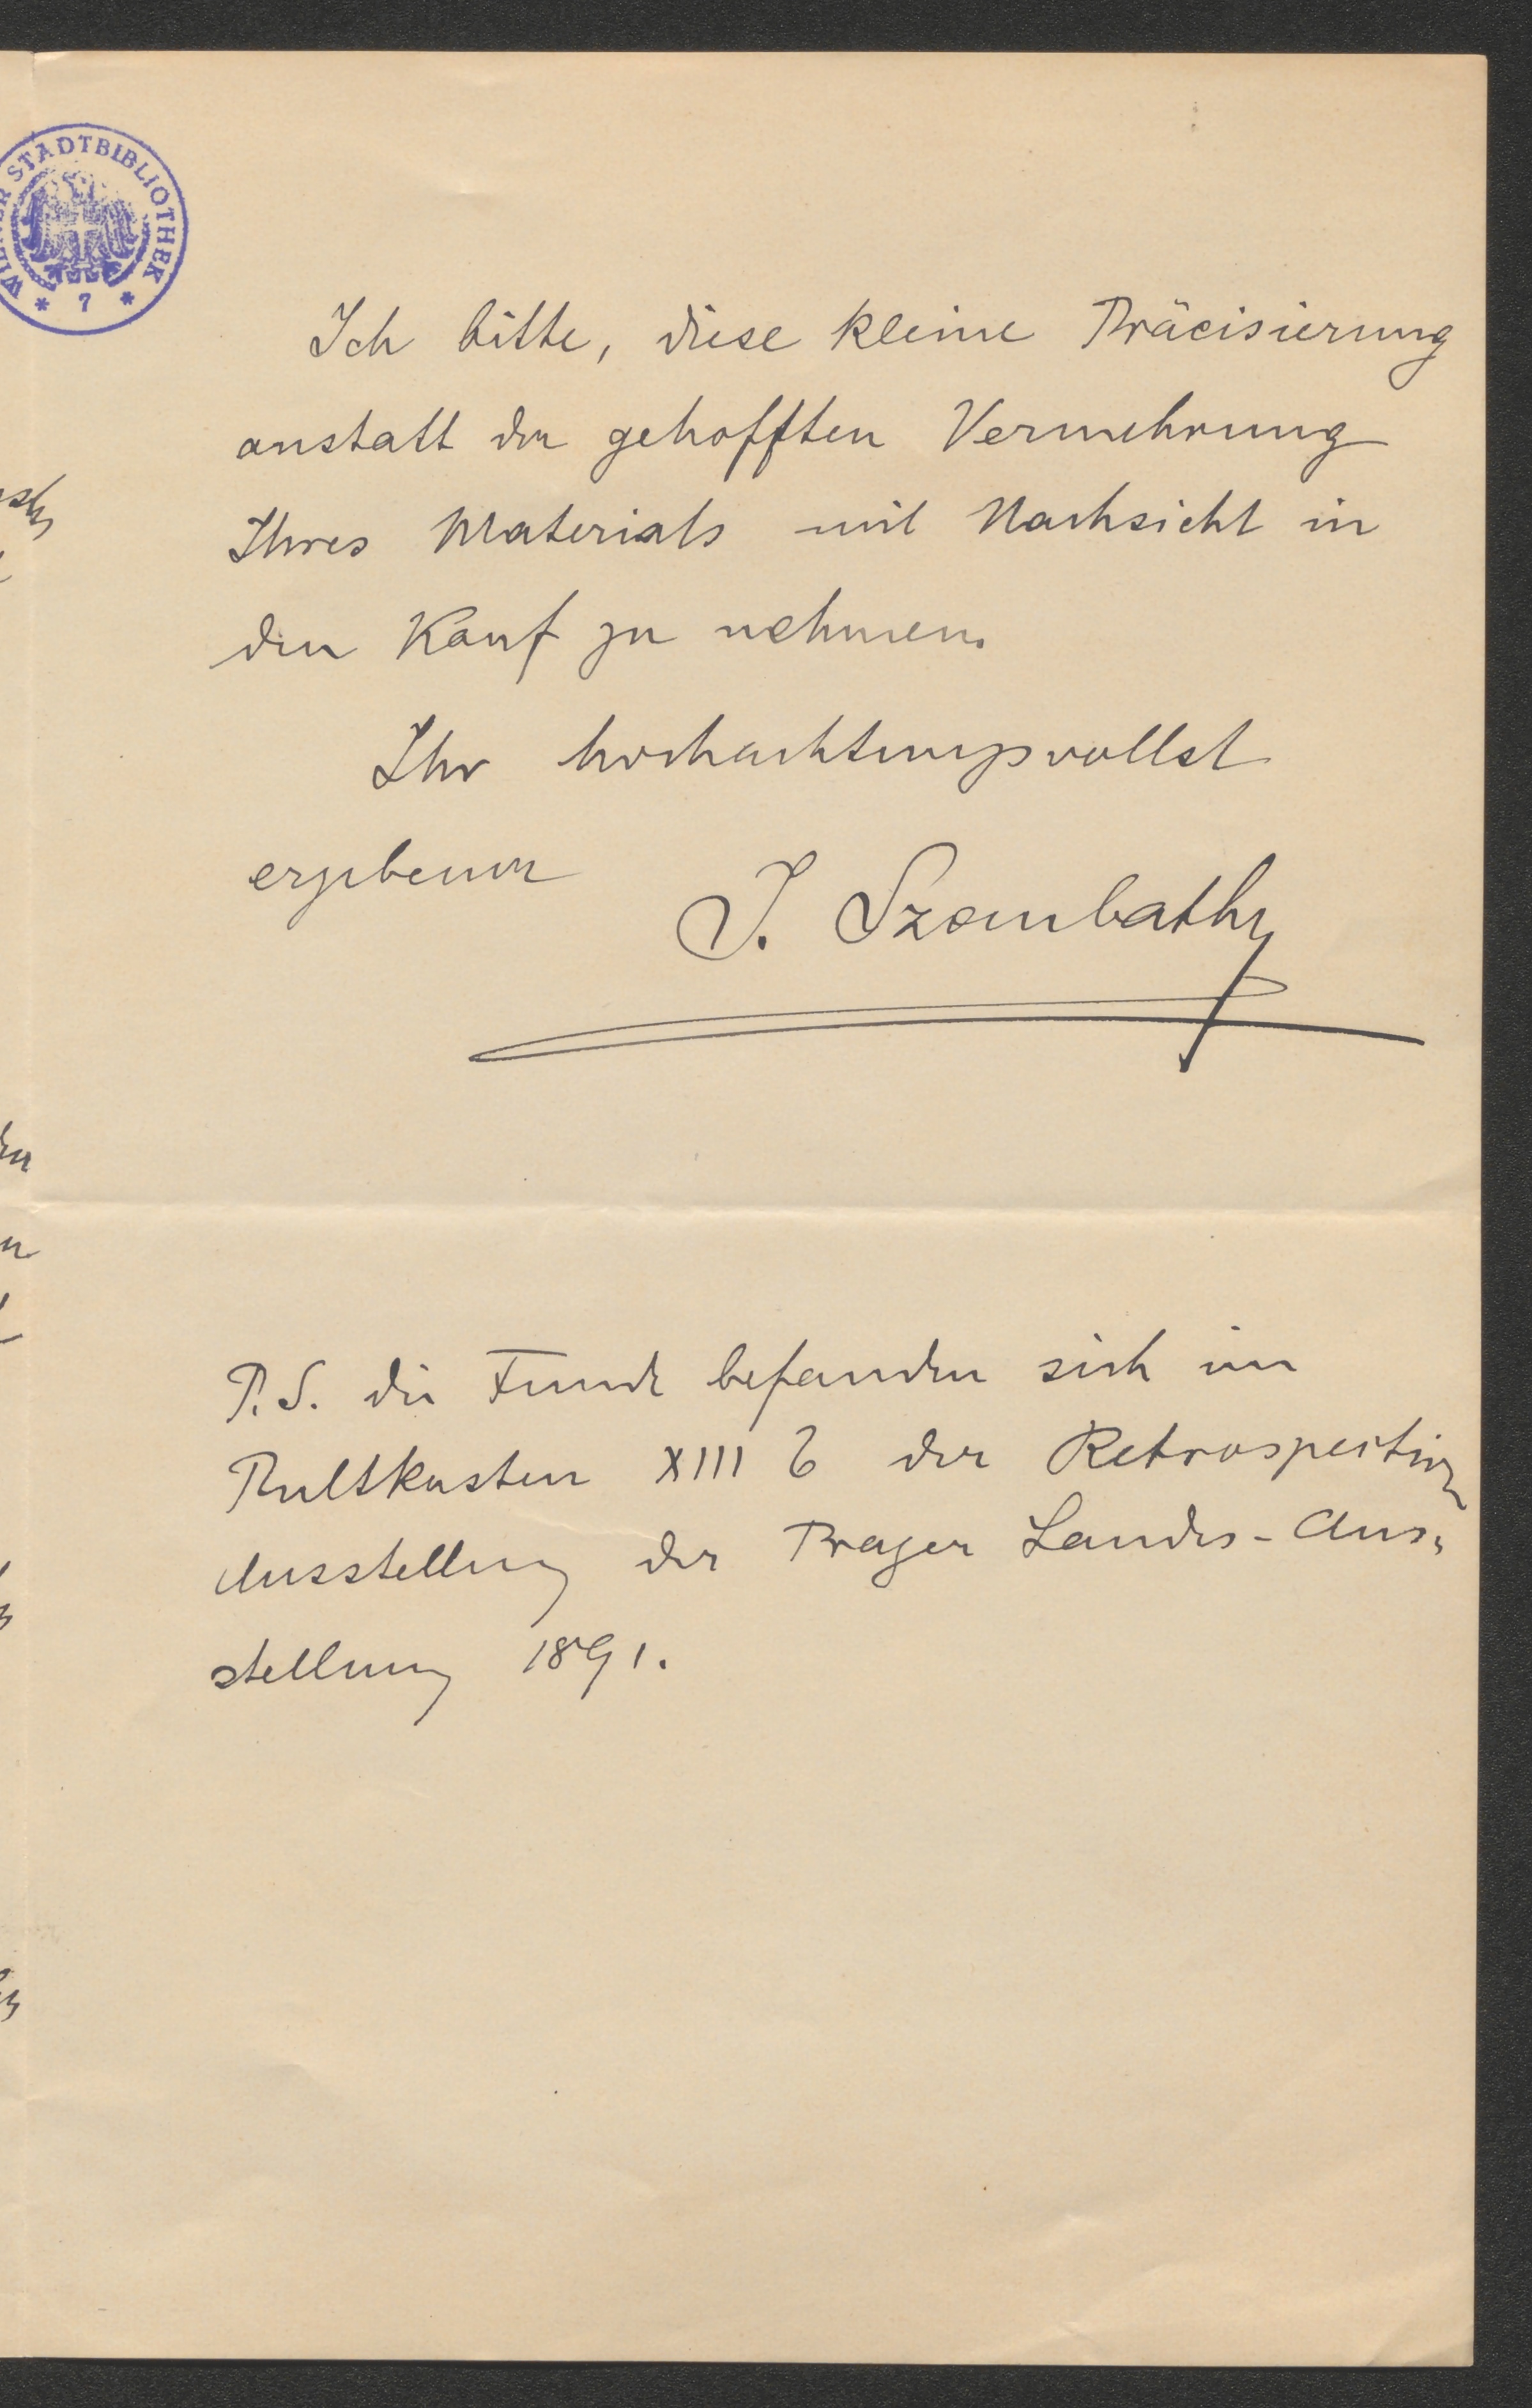 WIENER STADTBIBLIOTHEK
* 7 *
Ich bitte, diese kleine Präcisierung
anstatt der gehofften Vermehrung
Ihres Materials mit Nachsicht in
den Kauf zu nehmen.
Ihr hochachtungsvollst
ergebener J. Szombathy
P.S. die Funde befanden sich im
Pultkasten XIII 6 der Retrospectiven
Ausstellung der Prager Landes-Aus-
stellung 1891.